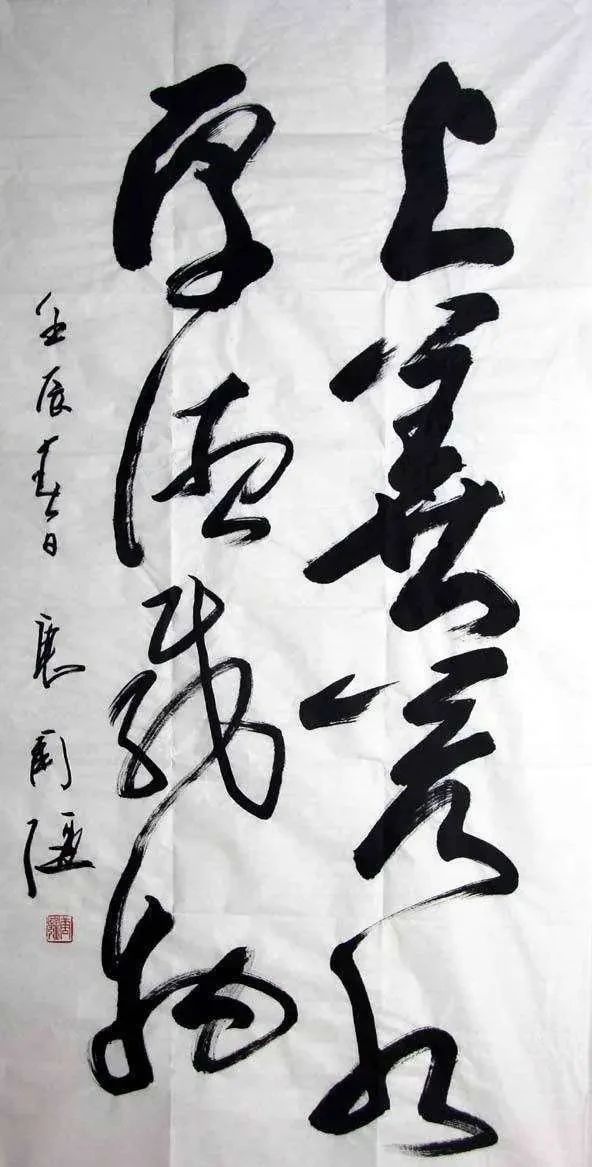 上善若水
厚德载物
壬辰春日 周